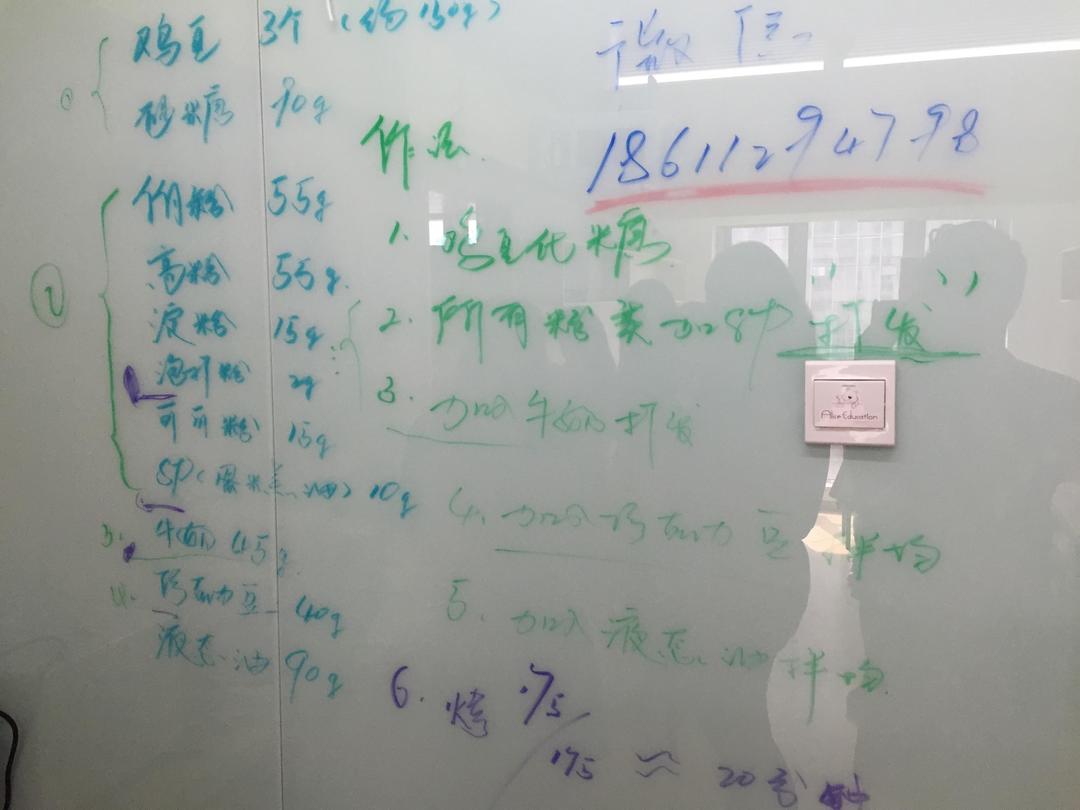 ① 鸡蛋 3个 (约150g)
砂糖 90g
② 低粉 55g
高粉 55g
淀粉 15g
泡打粉 2g
可可粉 15g
SP(蛋糕油) 10g
3. 牛奶 45g
4. 巧克力豆 40g
液态油 90g
微信
18611294798
作法
1. 鸡蛋化糖
2. 所有粉类加SP "打发"
3. 加入牛奶打发
4. 加入巧克力豆拌均
5. 加入液态油拌均
6. 烤 175/175 ≈ 20分钟
Alice Education